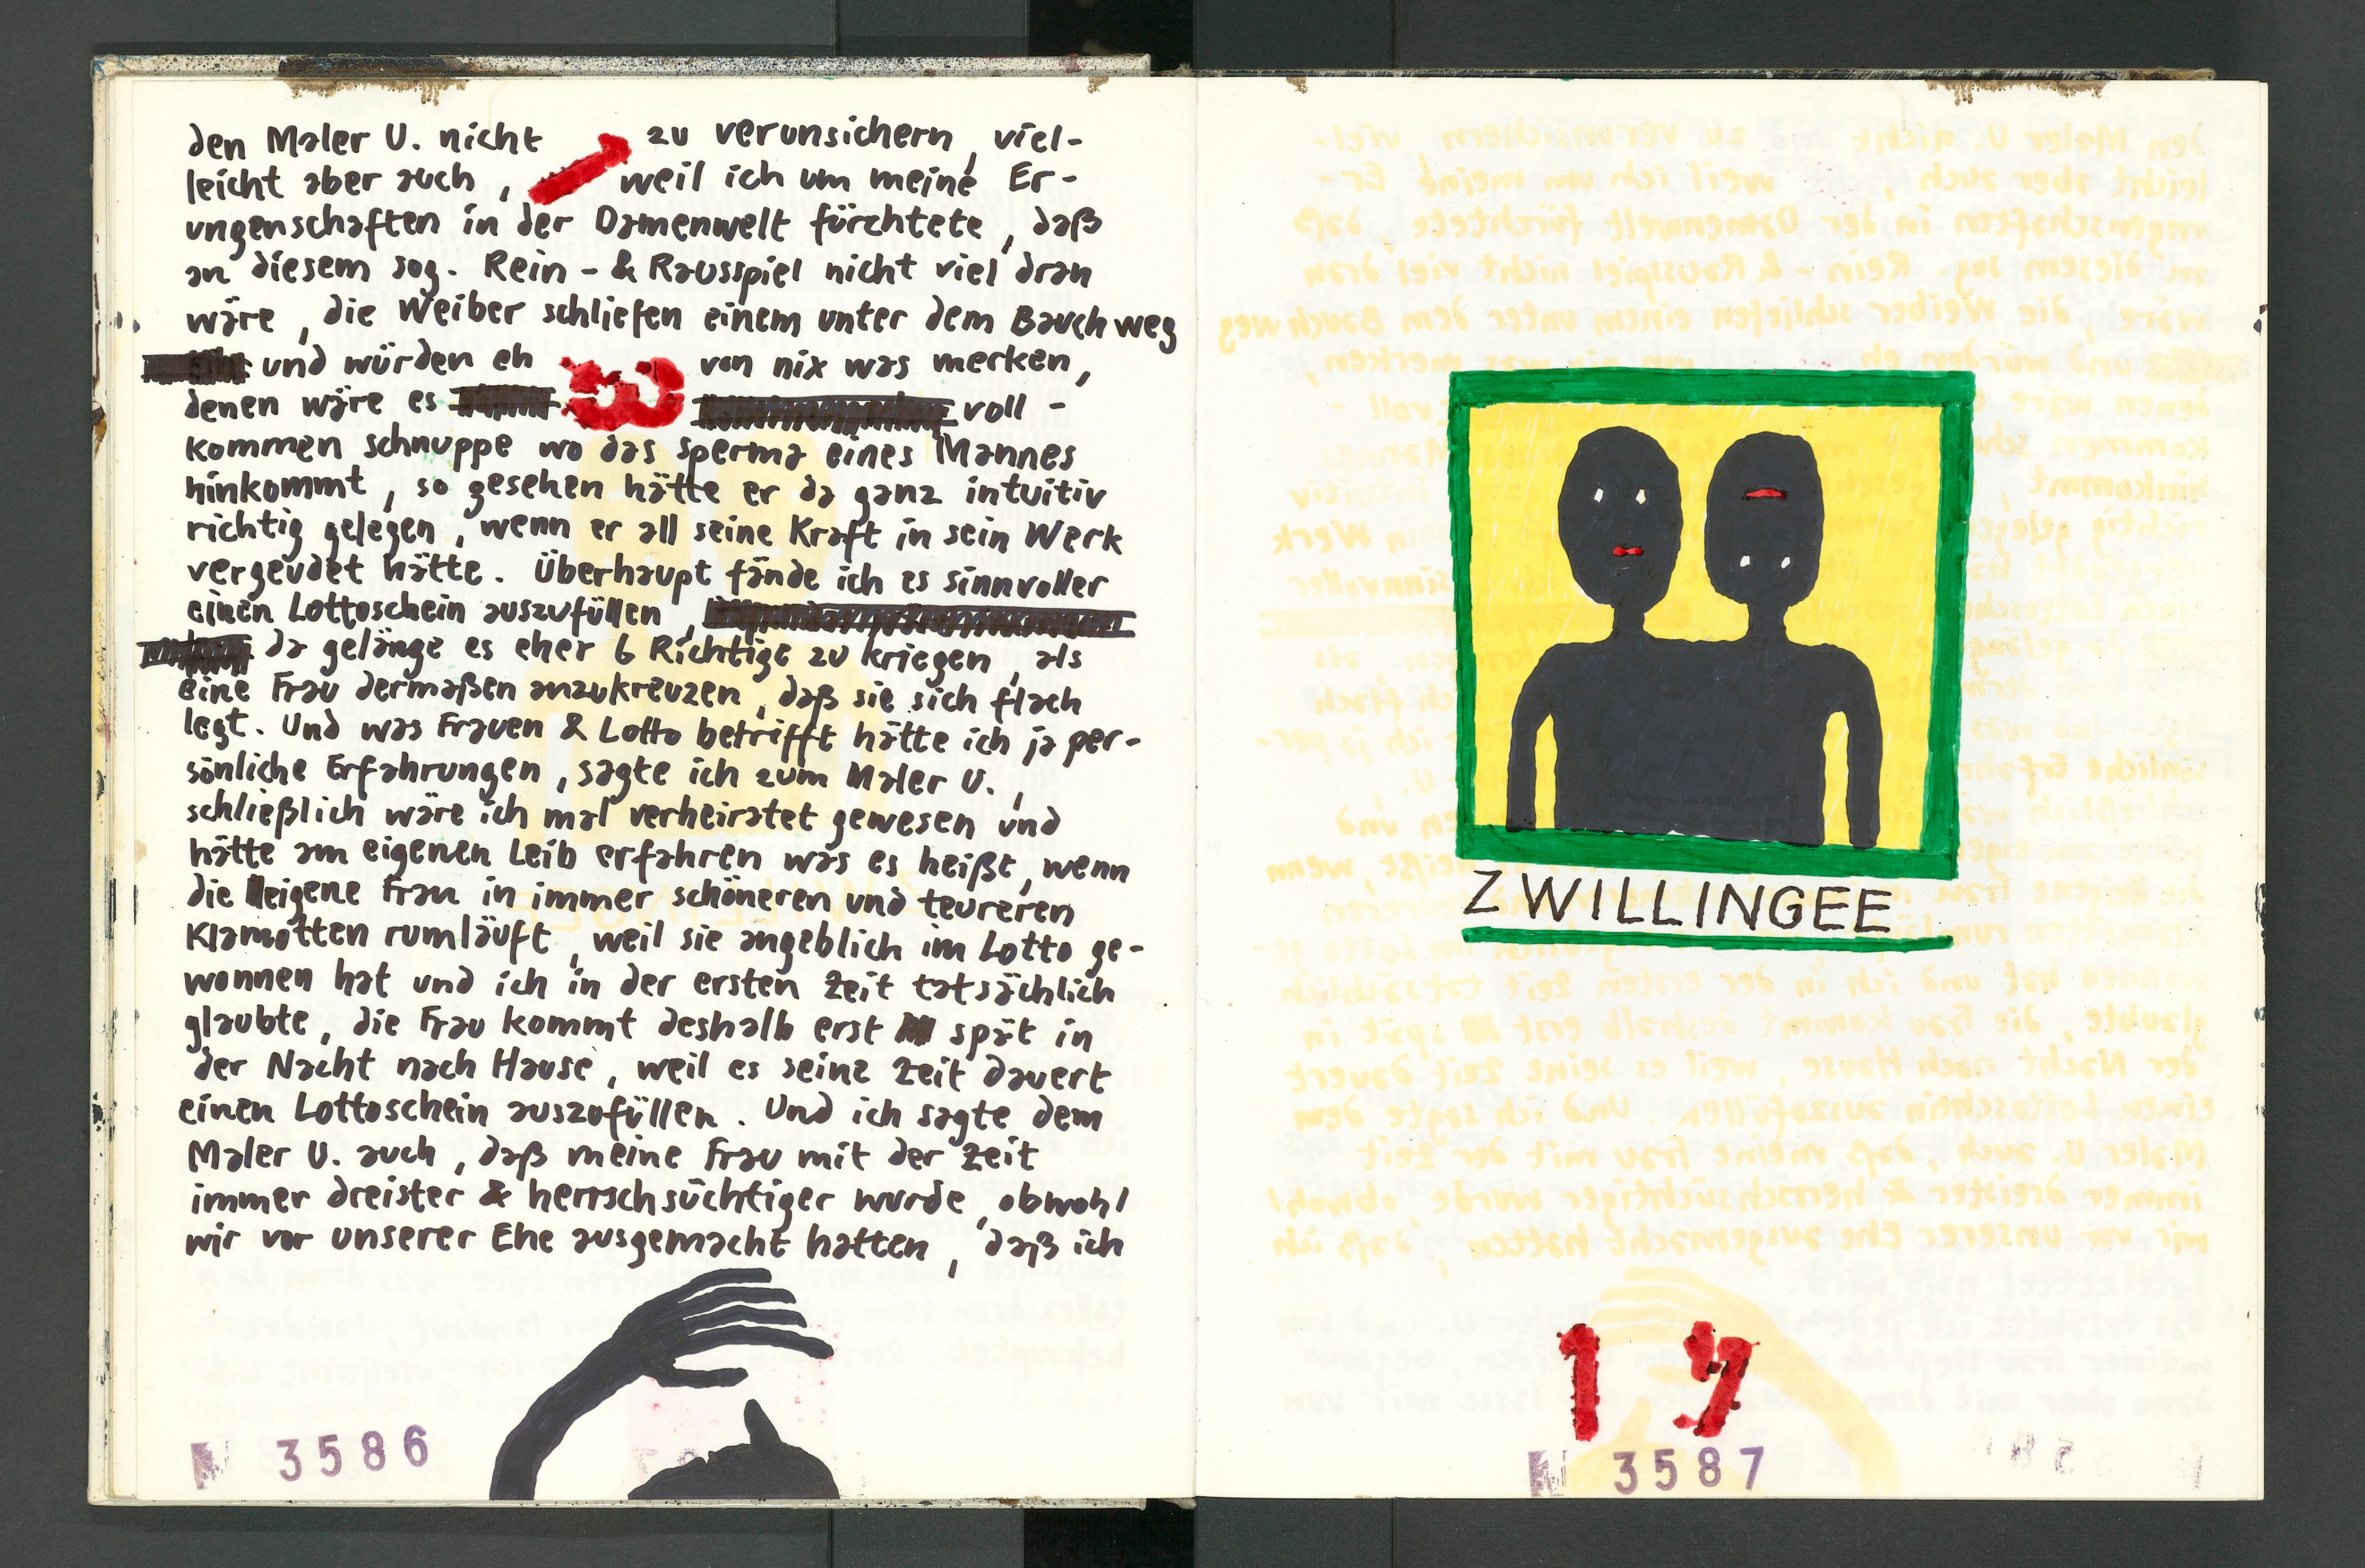 den Maler U. nicht zu verunsichern, viel-
leicht aber auch, weil ich um meine Er-
ungenschaften in der Damenwelt fürchtete, daß
an diesem sog. Rein- & Rausspiel nicht viel dran
wäre, die Weiber schliefen einem unter dem Bauch weg
und würden eh von nix was merken,
denen wäre es voll-
kommen schnuppe wo das sperma eines Mannes
hinkommt, so gesehen hätte er da ganz intuitiv
richtig gelegen, wenn er all seine Kraft in sein Werk
vergeudet hätte. Überhaupt fände ich es sinnvoller
einen Lottoschein auszufüllen,
da gelänge es eher 6 Richtige zu kriegen, als
eine Frau dermaßen anzukreuzen, daß sie sich flach
legt. Und was Frauen & Lotto betrifft hätte ich ja per-
sönliche Erfahrungen, sagte ich zum Maler U.,
schließlich wäre ich mal verheiratet gewesen und
hätte am eigenen Leib erfahren was es heißt, wenn
die eigene Frau in immer schöneren und teureren
Klamotten rumläuft, weil sie angeblich im Lotto ge-
wonnen hat und ich in der ersten Zeit tatsächlich
glaubte, die Frau kommt deshalb erst spät in
der Nacht nach Hause, weil es seine Zeit dauert
einen Lottoschein auszufüllen. Und ich sagte dem
Maler U. auch, daß meine Frau mit der Zeit
immer dreister & herrschsüchtiger wurde, obwohl
wir vor unserer Ehe ausgemacht hatten, daß ich
N 3586
ZWILLINGEE
19
N 3587